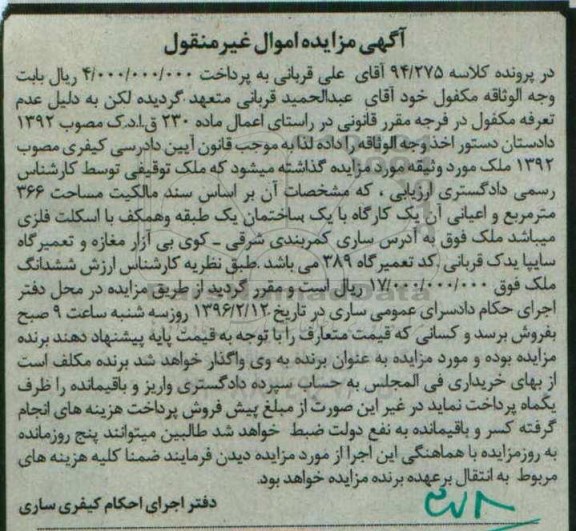 آگهی مزایده اموال غیرمنقول
در پرونده کلاسه ۹۴/۲۷۵ آقای علی قربانی به پرداخت ۴/۰۰۰/۰۰۰/۰۰۰ ریال بابت
وجه الوثاقه مکفول خود آقای عبدالحمید قربانی متعهد گردیده لکن به دلیل عدم
تعرفه مکفول در فرجه مقرر قانونی در راستای اعمال ماده ۲۳۰ ق.ا.د.ک مصوب ۱۳۹۲
دادستان دستور اخذ وجه الوثاقه را داده لذا به موجب قانون آیین دادرسی کیفری مصوب
۱۳۹۲ ملک مورد وثیقه مورد مزایده گذاشته میشود که ملک توقیفی توسط کارشناس
رسمی دادگستری ارزیابی ، که مشخصات آن بر اساس سند مالکیت مساحت ۳۶۶
مترمربع و اعیانی آن یک کارگاه با یک ساختمان یک طبقه وهمکف با اسکلت فلزی
میباشد ملک فوق به آدرس ساری کمربندی شرقی ـ کوی بی آزار مغازه و تعمیرگاه
سایپا یدک قربانی کد تعمیرگاه ۳۸۹ می باشد .طبق نظریه کارشناس ارزش ششدانگ
ملک فوق ۱۷/۰۰۰/۰۰۰/۰۰۰ ریال است و مقرر گردید از طریق مزایده در محل دفتر
اجرای حکام دادسرای عمومی ساری در تاریخ ۱۳۹۶/۲/۱۲ روزسه شنبه ساعت ۹ صبح
بفروش برسد و کسانی که قیمت متعارف را با توجه به قیمت پایه پیشنهاد دهند برنده
مزایده بوده و مورد مزایده به عنوان برنده به وی واگذار خواهد شد برنده مکلف است
از بهای خریداری فی المجلس به حساب سپرده دادگستری واریز و باقیمانده را ظرف
یکماه پرداخت نماید در غیر این صورت از مبلغ پیش فروش پرداخت هزینه های انجام
گرفته کسر و باقیمانده به نفع دولت ضبط خواهد شد طالبین میتوانند پنج روزمانده
به روزمزایده با هماهنگی این اجرا از مورد مزایده دیدن فرمایند ضمنا کلیه هزینه های
مربوط به انتقال برعهده برنده مزایده خواهد بود.
دفتر اجرای احکام کیفری ساری